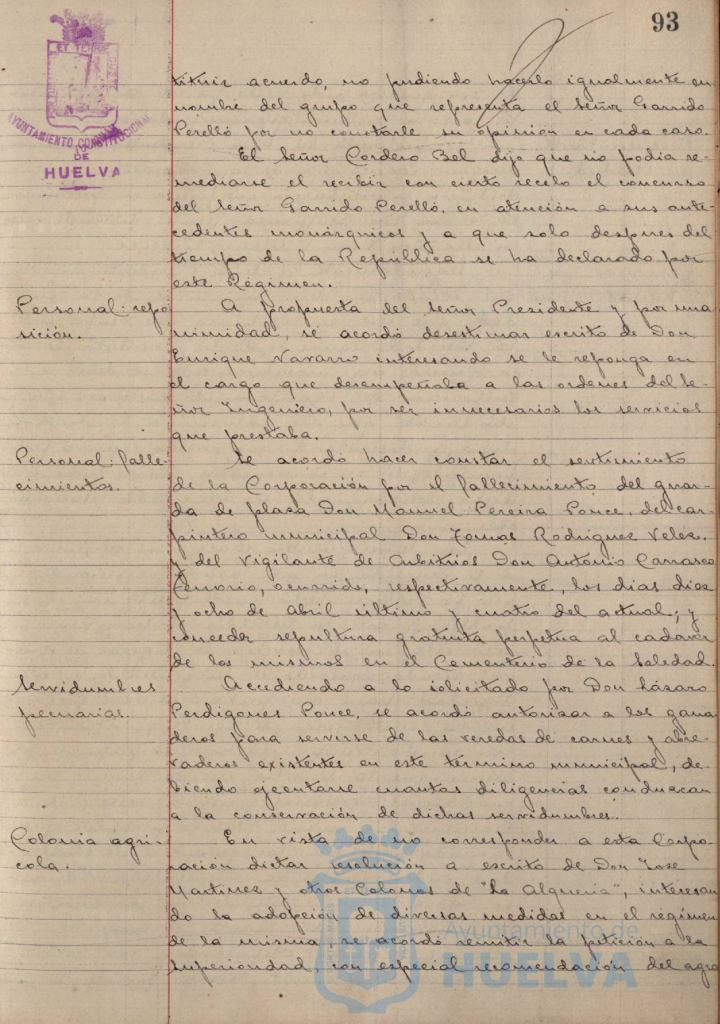 93
AYUNTAMIENTO CONSTITUCIONAL
DE
HUELVA
tituir acuerdo, no pudiendo hacerlo igualmente en
nombre del grupo que representa el Señor Garrido
Perelló por no constarle su opinión en cada caso.
El Señor Cordero Bel dijo que no podia re-
mediarse el recibir con cierto recelo el concurso
del Señor Garrido Perelló, en atención a sus ante-
cedentes monárquicos y a que solo despues del
tiempo de la República se ha declarado por
este Régimen.
Personal: repo
sición.
A propuesta del Señor Presidente y por una
nimidad, se acordó desestimar escrito de Don
Enrique Navarro interesando se le reponga en
el cargo que desempeñaba a las ordenes del Se-
ñor Ingeniero, por ser innecesarios los servicios
que prestaba.
Personal: falle-
cimientos.
Se acordó hacer constar el sentimiento
de la Corporación por el fallecimiento del guar-
da de plaza Don Manuel Pereira Ponce, del car-
pintero municipal Don Tomas Rodriguez Velez.
y del Vigilante de Arbitrios Don Antonio Carrasco
Tenorio, ocurrido, respectivamente, los dias diez
y ocho de Abril último y cuatro del actual; y
conceder sepultura gratuita perpetua al cadaver
de los mismos en el Cementerio de la Soledad.
Servidumbres
pecuarias.
Accediendo a lo solicitado por Don Lázaro
Perdigones Ponce, se acordó autorizar a los gana
deros para servirse de las veredas de carnes y abre-
vaderos existentes en este término municipal, de-
biendo ejecutarse cuantas diligencias conduzcan
a la conservación de dichas servidumbres.
Colonia agri-
cola.
En vista de no corresponder a esta Corpo-
ración dictar resolución a escrito de Don Jose
Martinez y otros Colonos de "La Alqueria", interesan
do la adopción de diversas medidas en el régimen
de la misma, se acordó remitir la petición a la
Superioridad, con especial recomendación del agra
Ayuntamiento de
HUELVA